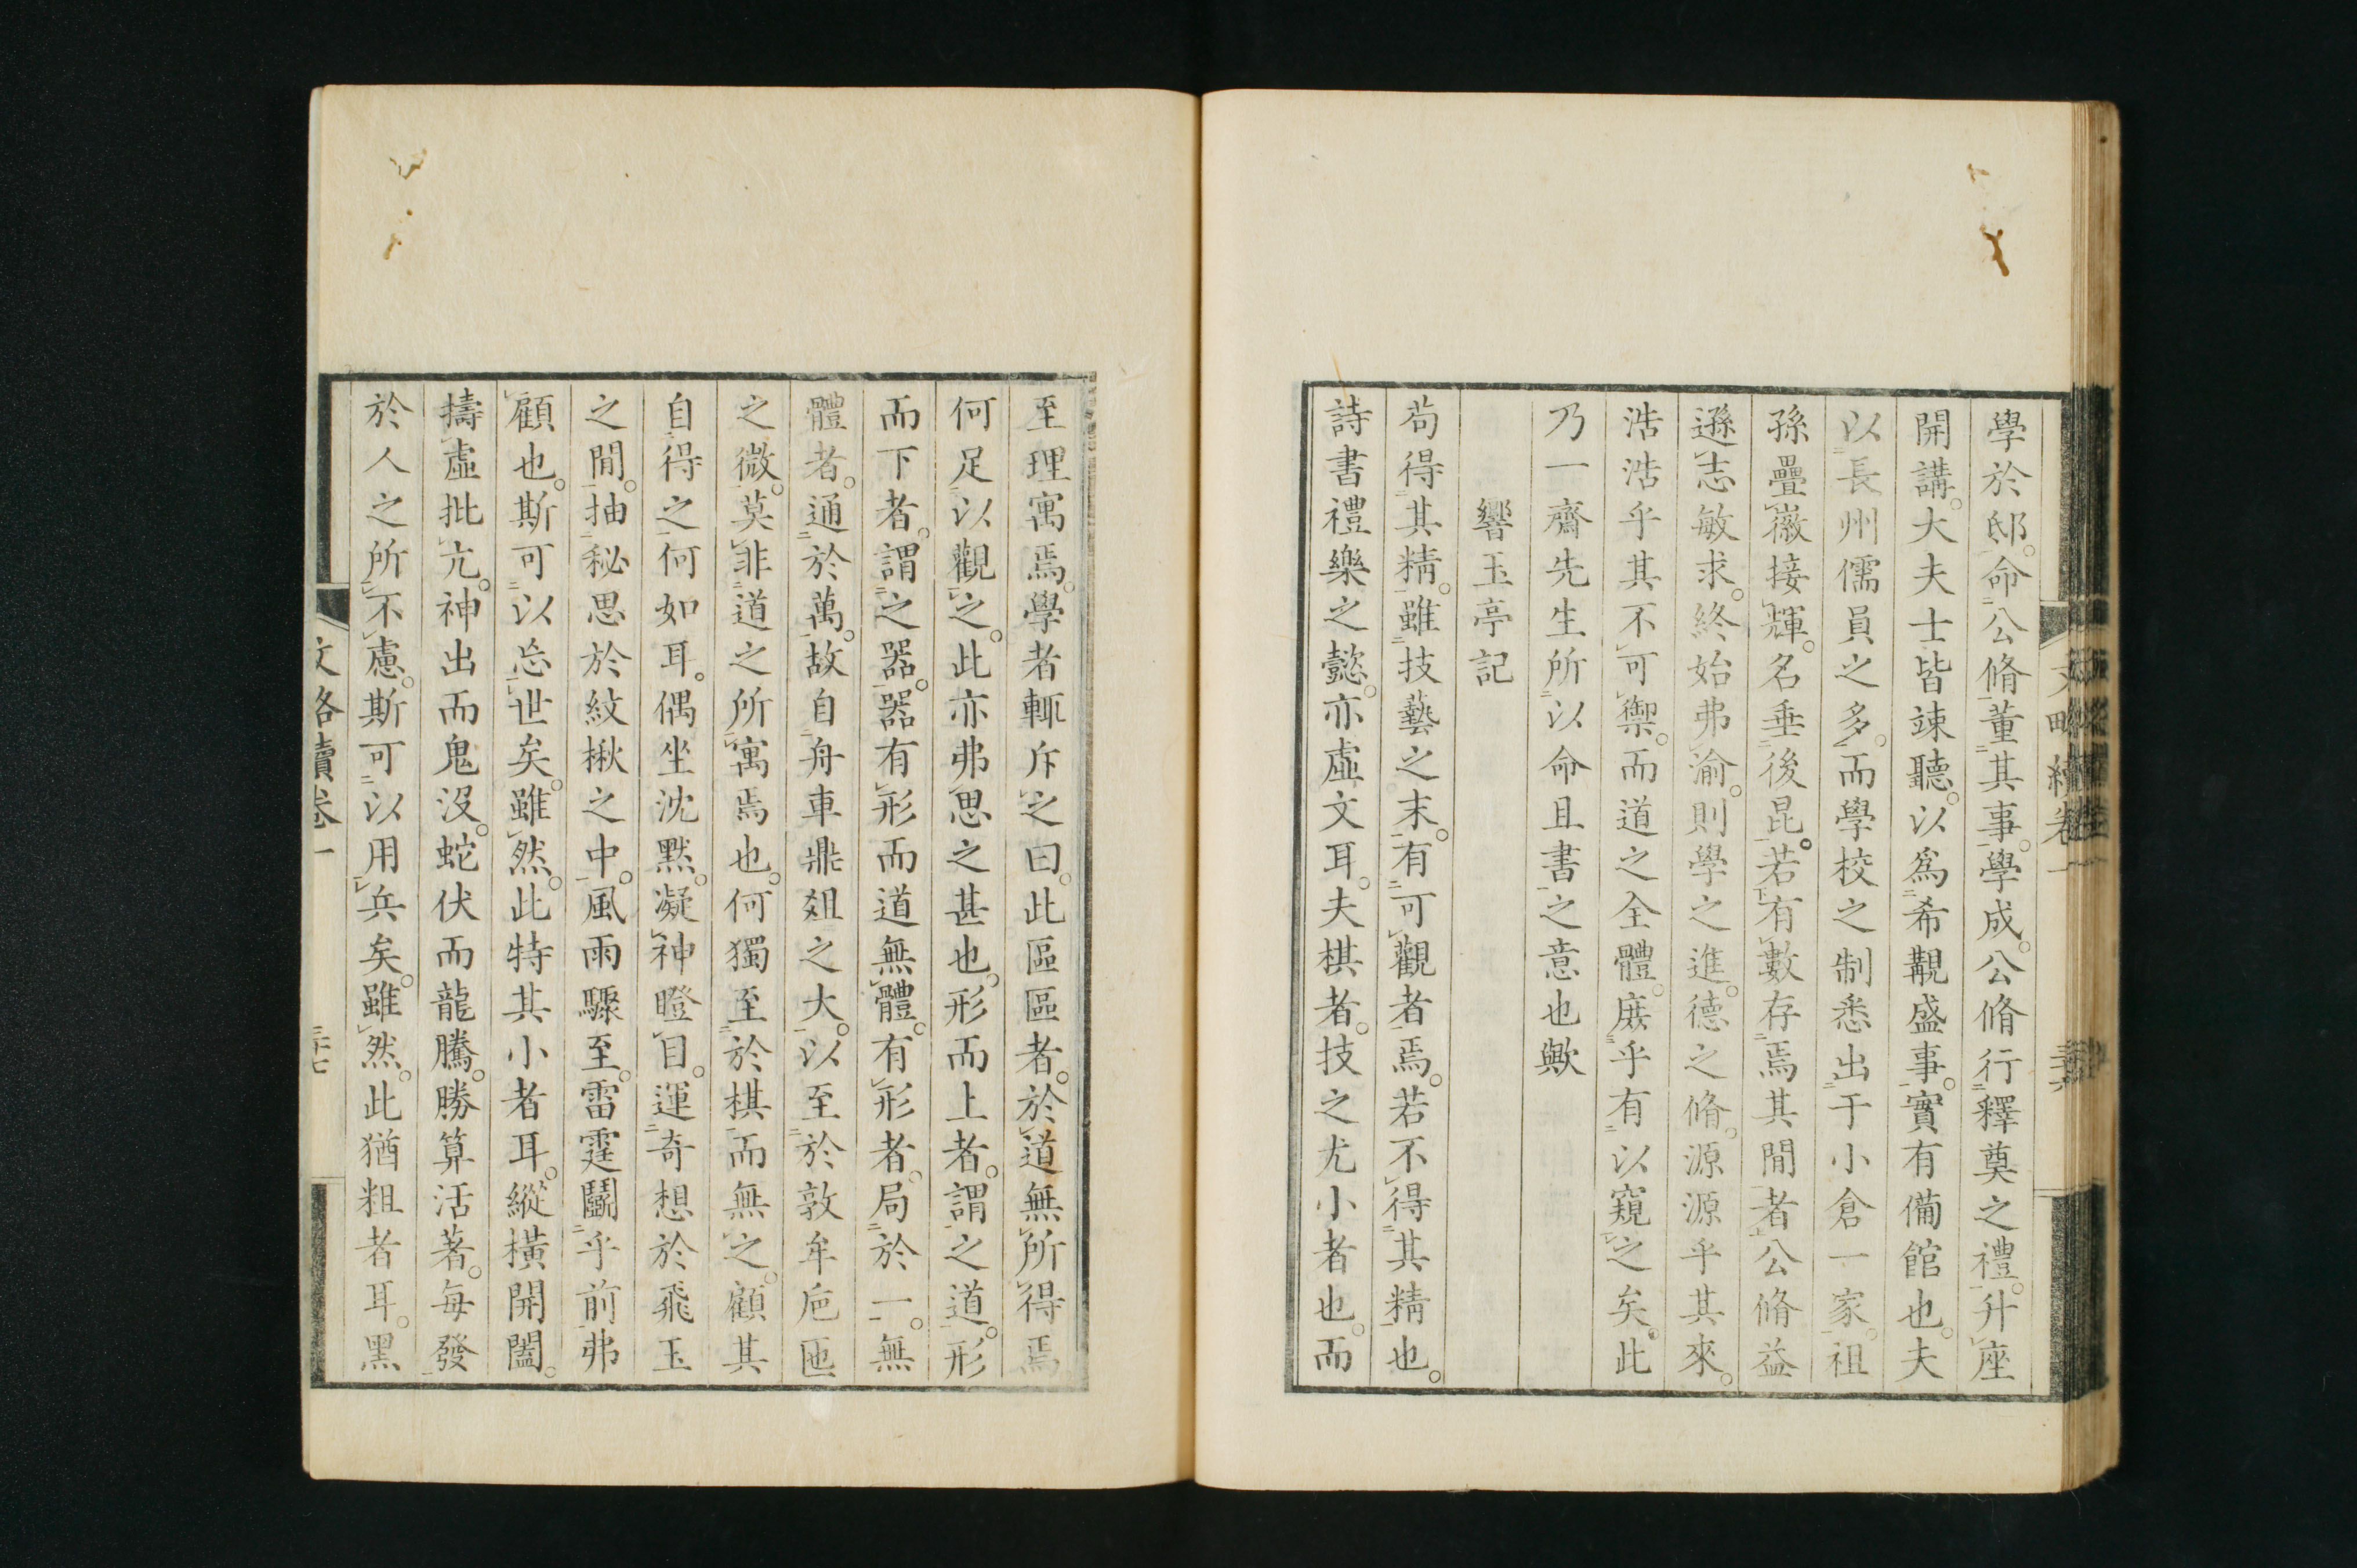 學於邸。命公脩董其事。學成。公脩行釋奠之禮。升座
開講。大夫士皆竦聽。以爲希覯盛事。實有備館也。夫
以長州儒員之多。而學校之制悉出于小倉一家。祖
孫疊徽接輝。名垂後昆。若有數存焉其閒者。公脩益
遜志敏求。終始弗渝。則學之進。德之脩。源源乎其來。
浩浩乎其不可禦。而道之全體。庶乎有以窺之矣。此
乃一齋先生所以命且書之意也歟
響玉亭記
苟得其精。雖技藝之末。有可觀者焉。若不得其精也。
詩書禮樂之懿。亦虛文耳。夫棋者。技之尤小者也。而
至理寓焉。學者輒斥之曰。此區區者。於道無所得焉
何足以觀之。此亦弗思之甚也。形而上者。謂之道。形
而下者。謂之器。器有形而道無體。有形者。局於一。無
體者。通於萬。故自舟車鼎俎之大。以至於敦牟巵匜
之微。莫非道之所寓焉也。何獨至於棋而無之。顧其
自得之何如耳。偶坐沈默。凝神瞪目。運奇想於飛玉
之閒。抽秘思於紋楸之中。風雨驟至。雷霆鬭乎前弗
顧也。斯可以忘世矣。雖然。此特其小者耳。縱橫開闔。
擣虛批亢。神出而鬼沒。蛇伏而龍騰。勝算活著。每發
於人之所不慮。斯可以用兵矣。雖然。此猶粗者耳。黑
文略續卷一
三十七